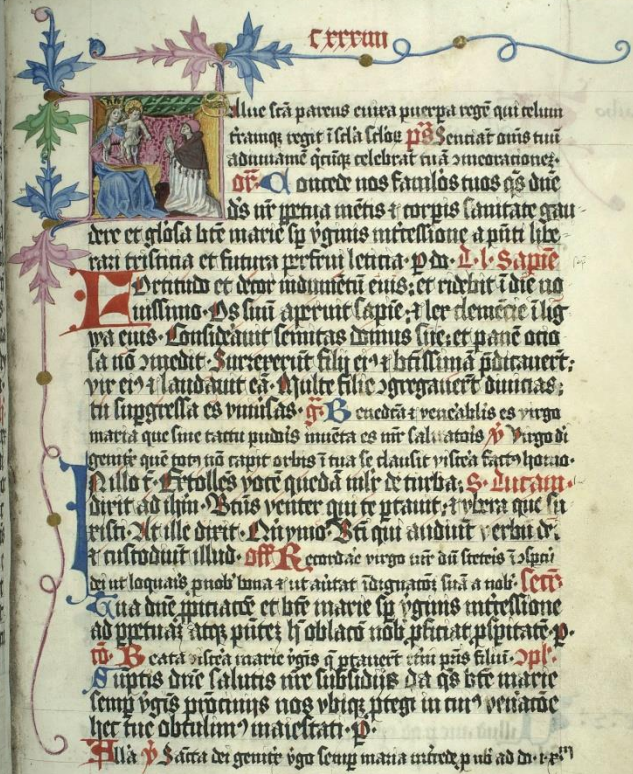 cxxxiiii
Salue sctā parens enixa puerpa regē qui celum
terramq; regit ī scla sclor ps Senciāt om̄s tuū
adiuuamē qcūq; celebrāt tuā ɔmeoracionez
or Concede nos famlos tuos qs dn̄e
ds nr̄ ppetua mētis ⁊ corpis sanitate gau-
dere et glosa bte marie sp ỽgnis int̄cessione a pn̄ti libe-
rari tristicia et futura perfrui leticia p do L l Sapīe
Fortitudo et decor indumētū eius: et ridebit ī die no
uissimo Os suū aperuit sapīe: ⁊ lex clemēcie ī lig
wa eius Considerauit semitas domus sue: et panē ocio
sa nō ɔmedit Surrexerūt filij eiꝰ ⁊ btissimā pdicauert:
vir eiꝰ ⁊ laudauit eā Multe filie ɔgregauert diuicias:
tu supgressa es vniūsas gͬ Benedcā ⁊ venēablis es virgo
maria que sine tactu pudoris inuēta es mr̄ saluatois ỽ Virgo di
genitͥx quē totꝰ nō capit orbis ī tua se clausit viscēa factꝰ homo
In illo t̄ Extolles vocē quedā mlr de turba S Lucam
dixit ad ihm Btūs venter qui te ptauit: ⁊ vbera que su
xisti At ille dixit Quymo Bti qui audiūt verbū di
⁊ custodiūt illud off Recordae virgo mr̄ dū steteis ī ɔspcū
dei ut loquais p nob bona ⁊ ut auītat īdignacōz suā a nob secͬ
Tua dn̄e ppiciacōe et bte marie sp ỽgnis int̄cessione
ad ppetuā atq; pn̄tez h oblacō nob pficiat pspitatē p
cō Beata viscēa marie ỽgis q ptauert etni pris filiū ɔpl
Suptis dn̄e salutis nre subsidijs da qs bte marie
semp ỽgnis prociniis nos vbiq; ptegi in cuiꝰ venācōe
hec tue obtulimꝰ maiestati p
Alla ỽ Sancta dei genitͥx ỽgo semp maria int̄cede p nb ad do